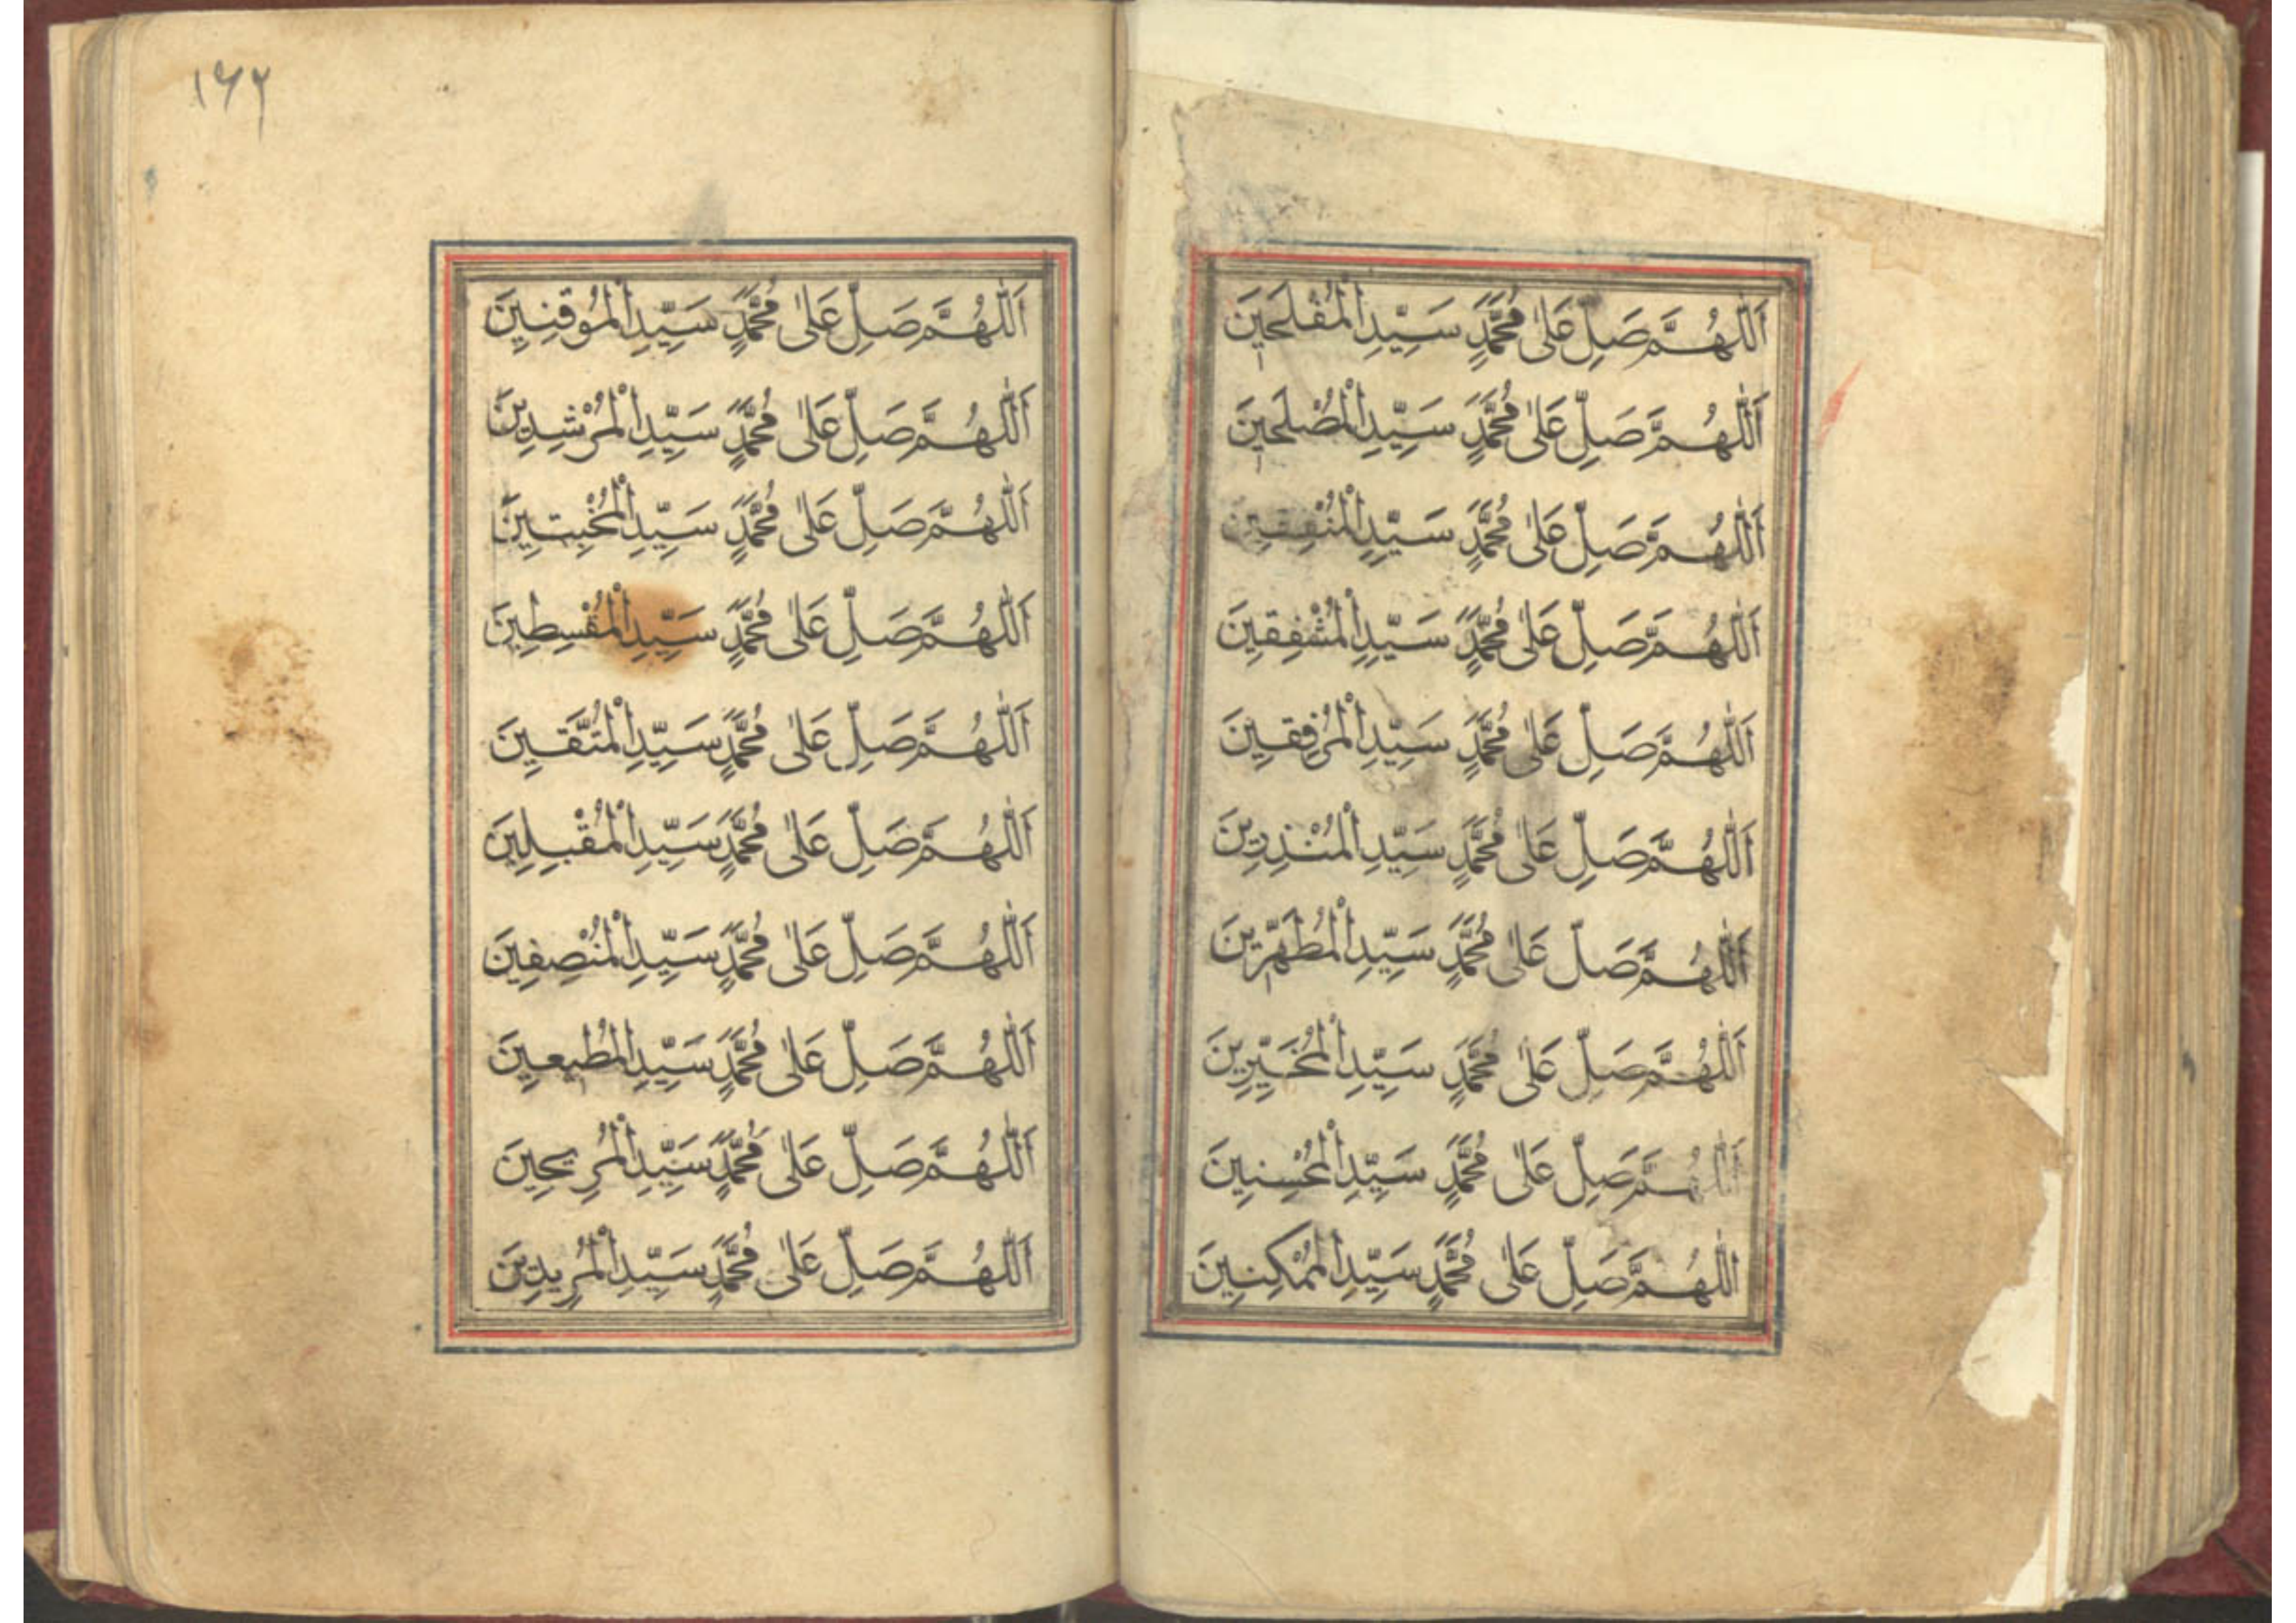 اَللّٰهُمَّ صَلِّ عَلٰى مُحَمَّدٍ سَيِّدِ الْمُفْلِحِينَ
اَللّٰهُمَّ صَلِّ عَلٰى مُحَمَّدٍ سَيِّدِ الْمُصْلِحِينَ
اَللّٰهُمَّ صَلِّ عَلٰى مُحَمَّدٍ سَيِّدِ الْمُنْفِقِينَ
اَللّٰهُمَّ صَلِّ عَلٰى مُحَمَّدٍ سَيِّدِ الْمُشْفِقِينَ
اَللّٰهُمَّ صَلِّ عَلٰى مُحَمَّدٍ سَيِّدِ الْمُرْفِقِينَ
اَللّٰهُمَّ صَلِّ عَلٰى مُحَمَّدٍ سَيِّدِ الْمُنْذِرِينَ
اَللّٰهُمَّ صَلِّ عَلٰى مُحَمَّدٍ سَيِّدِ الْمُطَهَّرِينَ
اَللّٰهُمَّ صَلِّ عَلٰى مُحَمَّدٍ سَيِّدِ الْمُخَيِّرِينَ
اَللّٰهُمَّ صَلِّ عَلٰى مُحَمَّدٍ سَيِّدِ الْمُحْسِنِينَ
اَللّٰهُمَّ صَلِّ عَلٰى مُحَمَّدٍ سَيِّدِ الْمُمْكِنِينَ
اَللّٰهُمَّ صَلِّ عَلٰى مُحَمَّدٍ سَيِّدِ الْمُوقِنِينَ
اَللّٰهُمَّ صَلِّ عَلٰى مُحَمَّدٍ سَيِّدِ الْمُرْشِدِينَ
اَللّٰهُمَّ صَلِّ عَلٰى مُحَمَّدٍ سَيِّدِ الْمُخْبِتِينَ
اَللّٰهُمَّ صَلِّ عَلٰى مُحَمَّدٍ سَيِّدِ الْمُقْسِطِينَ
اَللّٰهُمَّ صَلِّ عَلٰى مُحَمَّدٍ سَيِّدِ الْمُتَّقِينَ
اَللّٰهُمَّ صَلِّ عَلٰى مُحَمَّدٍ سَيِّدِ الْمُقْبِلِينَ
اَللّٰهُمَّ صَلِّ عَلٰى مُحَمَّدٍ سَيِّدِ الْمُنْصِفِينَ
اَللّٰهُمَّ صَلِّ عَلٰى مُحَمَّدٍ سَيِّدِ الْمُطِيعِينَ
اَللّٰهُمَّ صَلِّ عَلٰى مُحَمَّدٍ سَيِّدِ الْمُرِيحِينَ
اَللّٰهُمَّ صَلِّ عَلٰى مُحَمَّدٍ سَيِّدِ الْمُرِيدِينَ